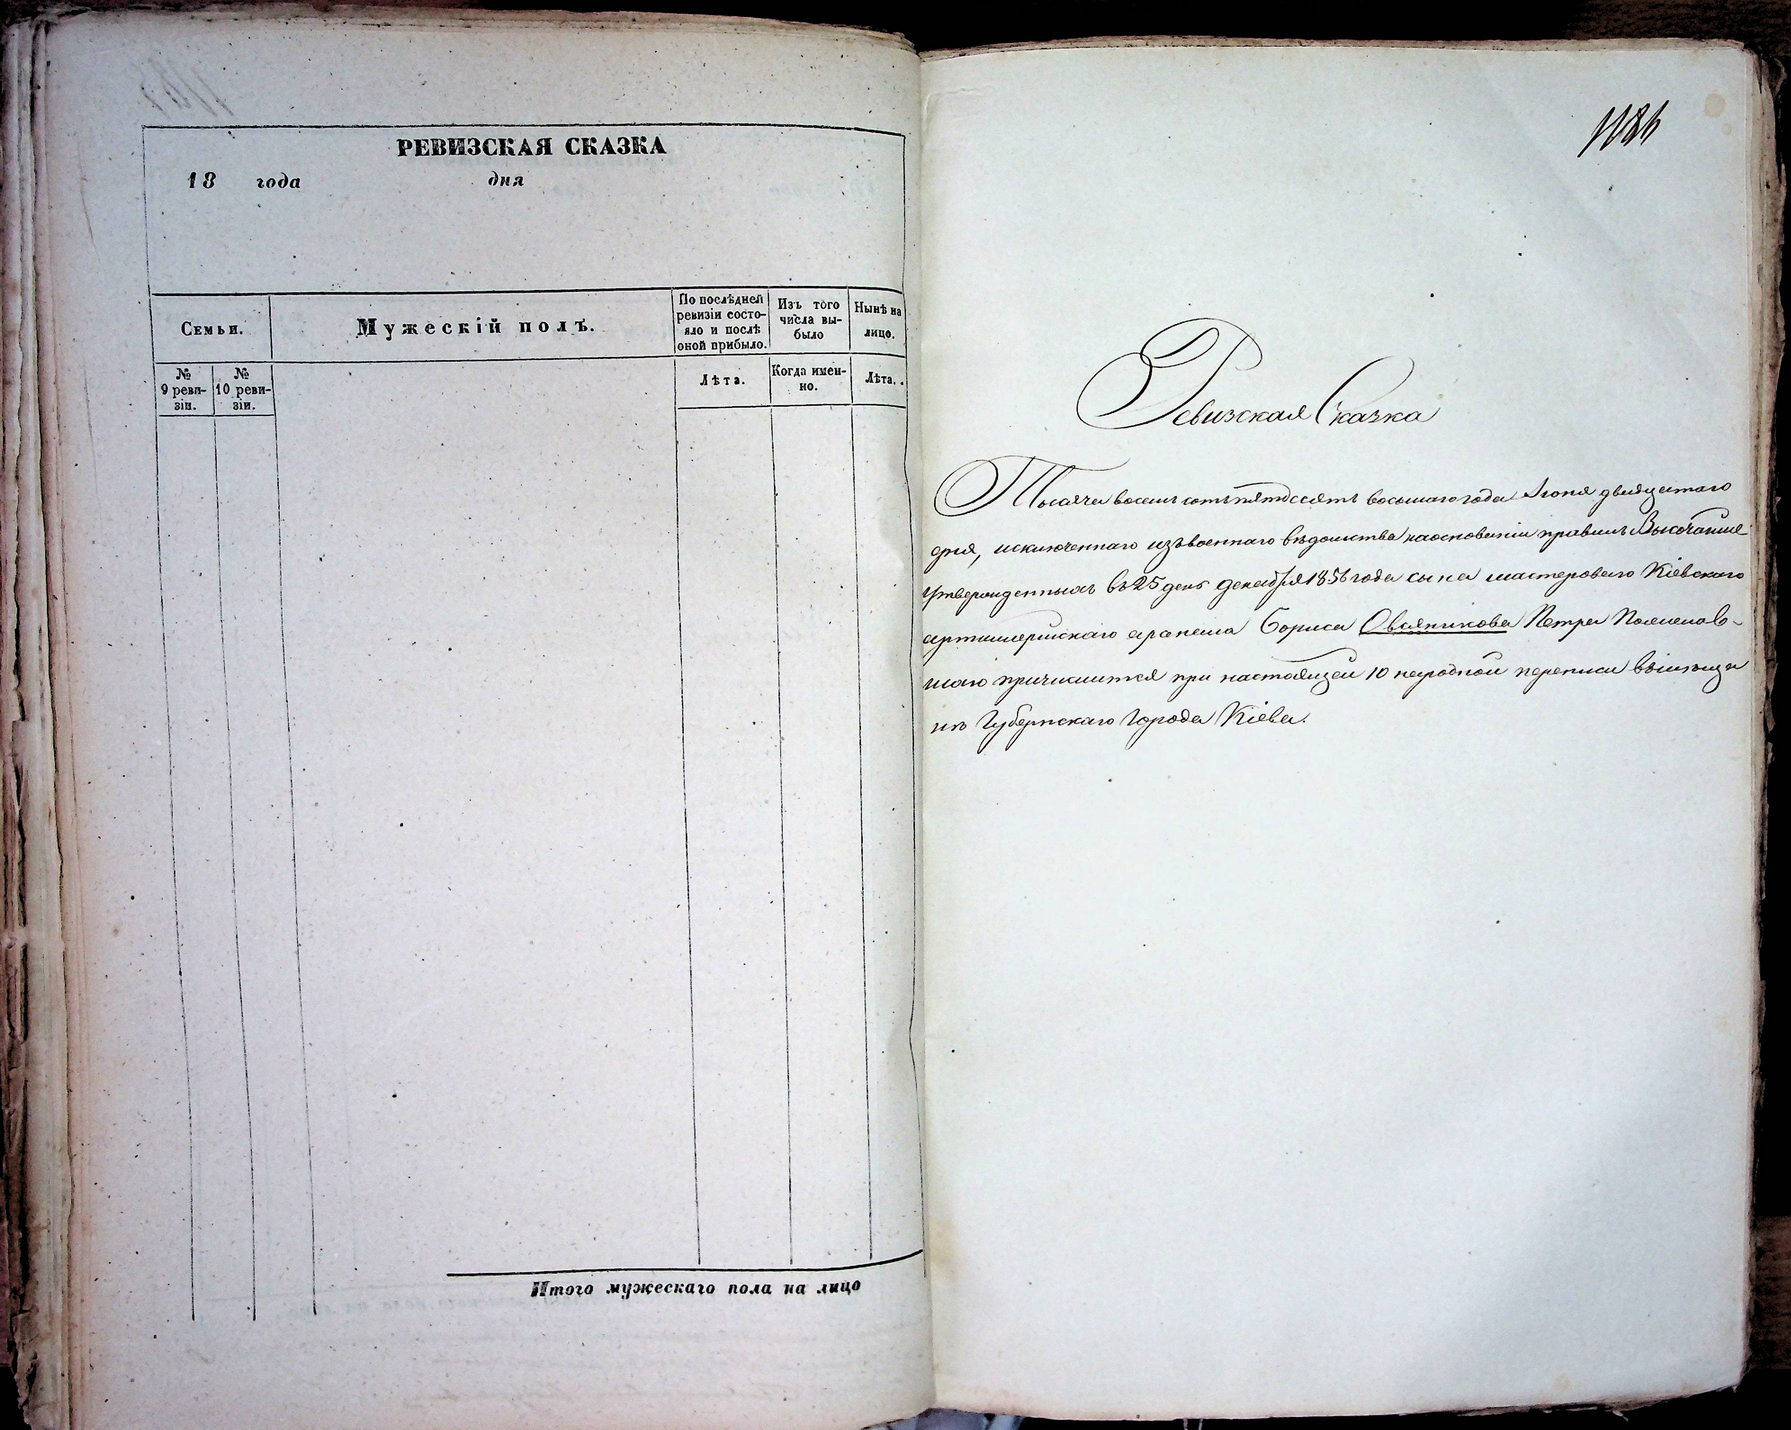 РЕВИЗСКАЯ СКАЗКА
18 года дня
Семьи.
Мужескій полъ.
По послѣдней ревизіи состояло и послѣ оной прибыло.
Изъ того числа выбыло
Нынѣ на лицо.
№ 9 ревизіи.
№ 10 ревизіи.
Лѣта.
Когда именно.
Лѣта.
Итого мужескаго пола на лицо
1186
Ревизская Сказка
Тысяча восемь сотъ пятдесятъ восьмаго года Іюня двадцатаго
дня, исключеннаго изъ военнаго вѣдомства на основаніи правилъ Высочайше
утвержденныхъ въ 25 день декабря 1856 года сына мастероваго Кіевскаго
артиллерійскаго арсенала Бориса Овсяникова Петра Пожелав-
шаго причислится при настоящей 10 народной переписи въ мѣща
не Губернскаго Города Кіева.